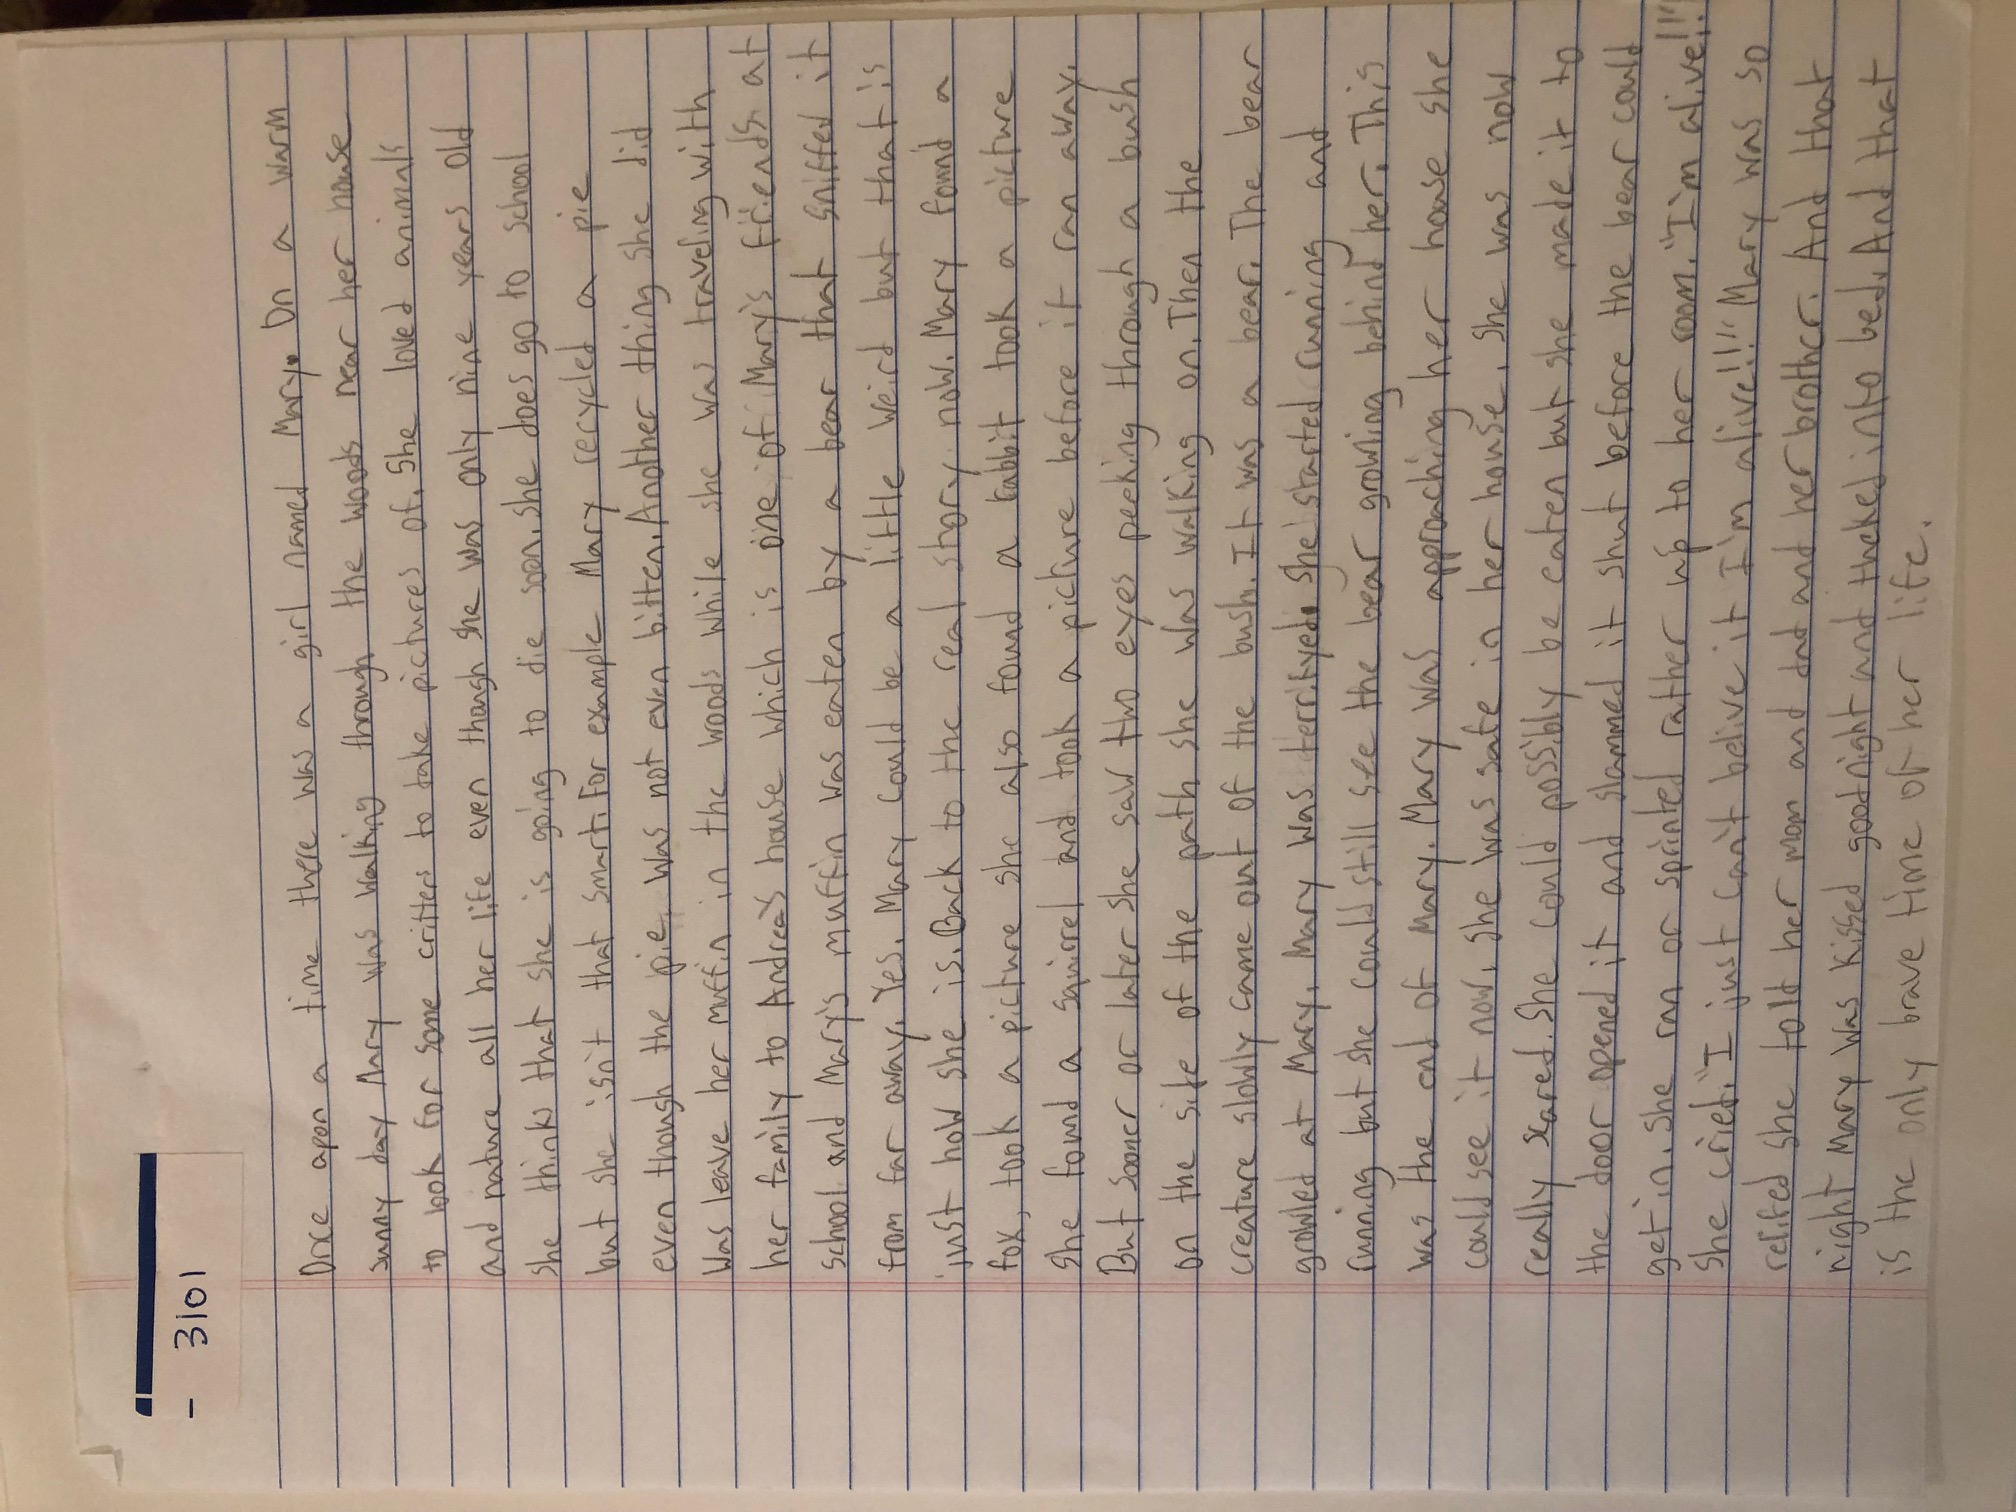 - 3101
Once apon a time there was a girl named Mary. On a warm
sunny day Mary was walking through the woods near her house
to look for some critters to take pictures of. She loved animals
and nature all her life even though she was only nine years old
she thinks that she is going to die soon. She does go to school
but she isn't that smart. For example Mary recycled a pie
even though the pie was not even bitten. Another thing she did
was leave her muffin in the woods while she was traveling with
her family to Andrea's house which is one of Mary's friends at
school and Mary's muffin was eaten by a bear that sniffed it
from far away. Yes. Mary could be a little weird but that is
just how she is. Back to the real story now. Mary found a
fox, took a picture she also found a rabbit took a picture
she found a squirrel and took a picture before it ran away.
But sooner or later she saw two eyes peeking through a bush
on the side of the path she was walking on. Then the
creature slowly came out of the bush. It was a bear. The bear
growled at Mary. Mary was terrifyed. She started running and
running but she could still see the bear growling behind her. This
was the end of Mary. Mary was approaching her house she
could see it now. She was safe in her house. She was now
really scared. She could possibly be eaten but she made it to
the door opened it and slammed it shut before the bear could
get in. She ran or sprinted rather up to her room. "I'm alive!!"
She cried. "I just can't belive it I'm alive!!!" Mary was so
relifed she told her mom and dad and her brother. And that
night Mary was kissed goodnight and into bed. And that
is the only brave time of her life.